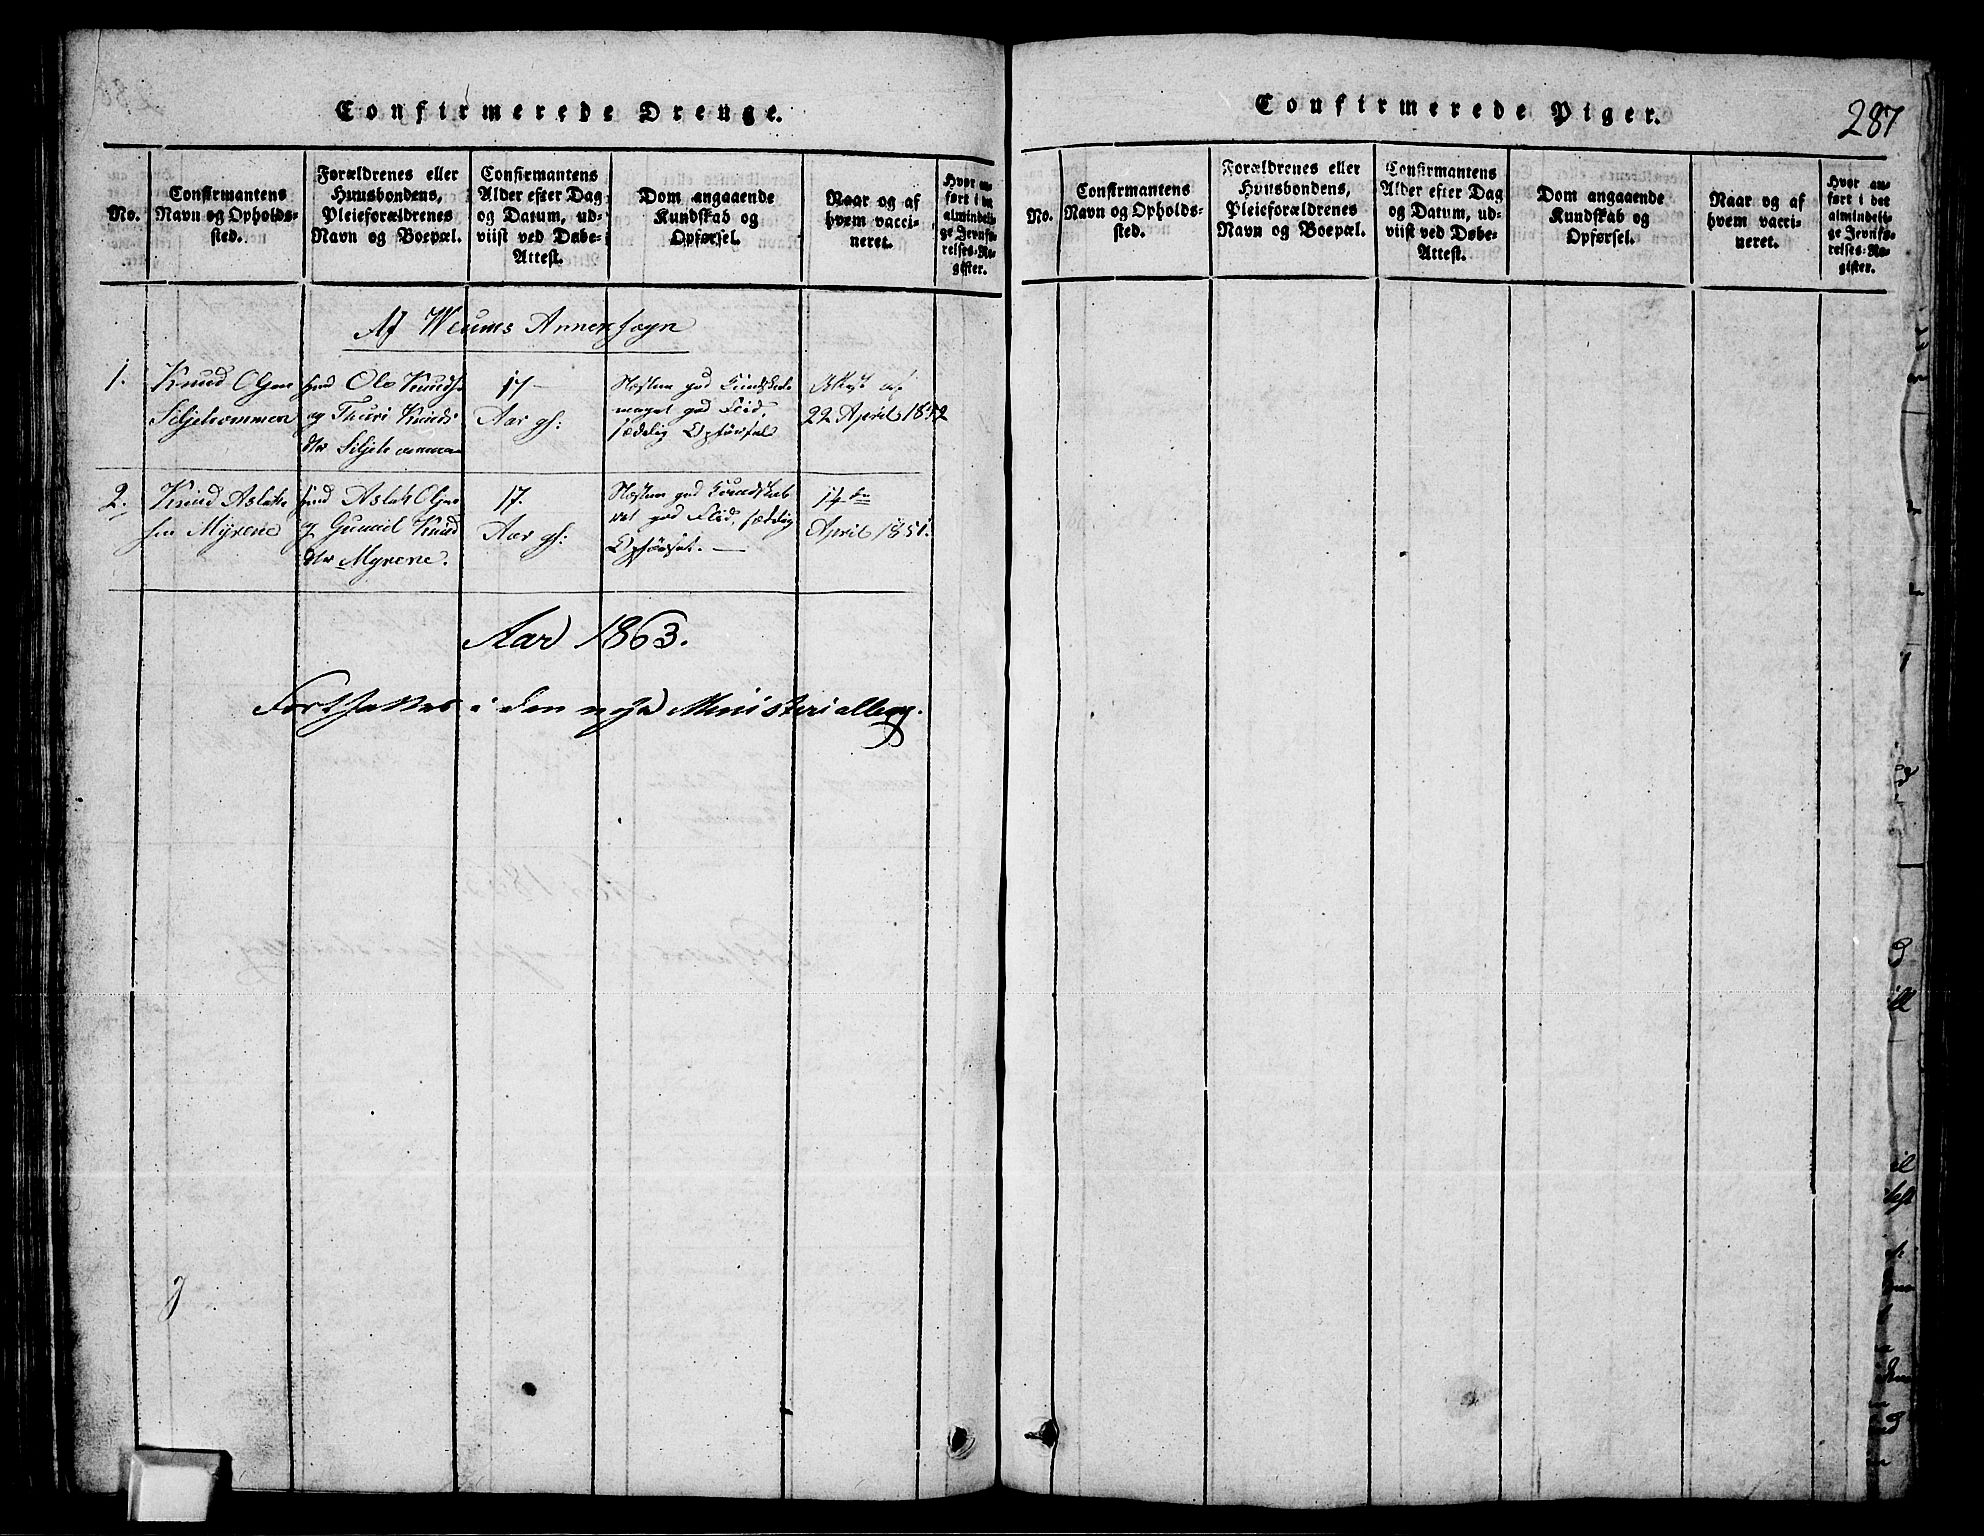 Confirmerede Drenge.
No.
Confirmantens
Navn og Opholds-
sted.
Forældrenes eller
Huusbondens,
Pleieforældrenes
Navn og Boepæl.
Confirmantens
Alder efter Dag
og Datum, ud-
viist ved Døbe-
Attest.
Dom angaaende
Kundskab og
Opførsel.
Naar og af
hvem vacci-
neret.
Hvor an-
ført i det
almindeli-
ge Jevnfø-
relses-Re-
gister.
Af Weums Annexsogn
1.
Knud Olsen
Siljehommen
Ole Knuds
og Thuri Knuds
dtr
17
Aar gl:
Næsten god Kundskab
meget god Flid,
sædelig Opførsel
22 April 1852
2.
Knud Aslak
sen Myrene
Aslak Olsen
og Gunild Knud
dtr Myrene.
17.
Aar gl:
Næsten god Kundskab
god Flid, sædelig
Opførsel.
14de
April 1851.
Aar 1863.
Fortsættes i den nye Ministerialbog.
Confirmerede Piger.
287
No.
Confirmantens
Navn og Opholds-
sted.
Forældrenes eller
Huusbondens,
Pleieforældrenes
Navn og Boepæl.
Confirmantens
Alder efter Dag
og Datum, ud-
viist ved Døbe-
Attest.
Dom angaaende
Kundskab og
Opførsel.
Naar og af
hvem vacci-
neret.
Hvor an-
ført i det
almindeli-
ge Jevnfø-
relses-Re-
gister.